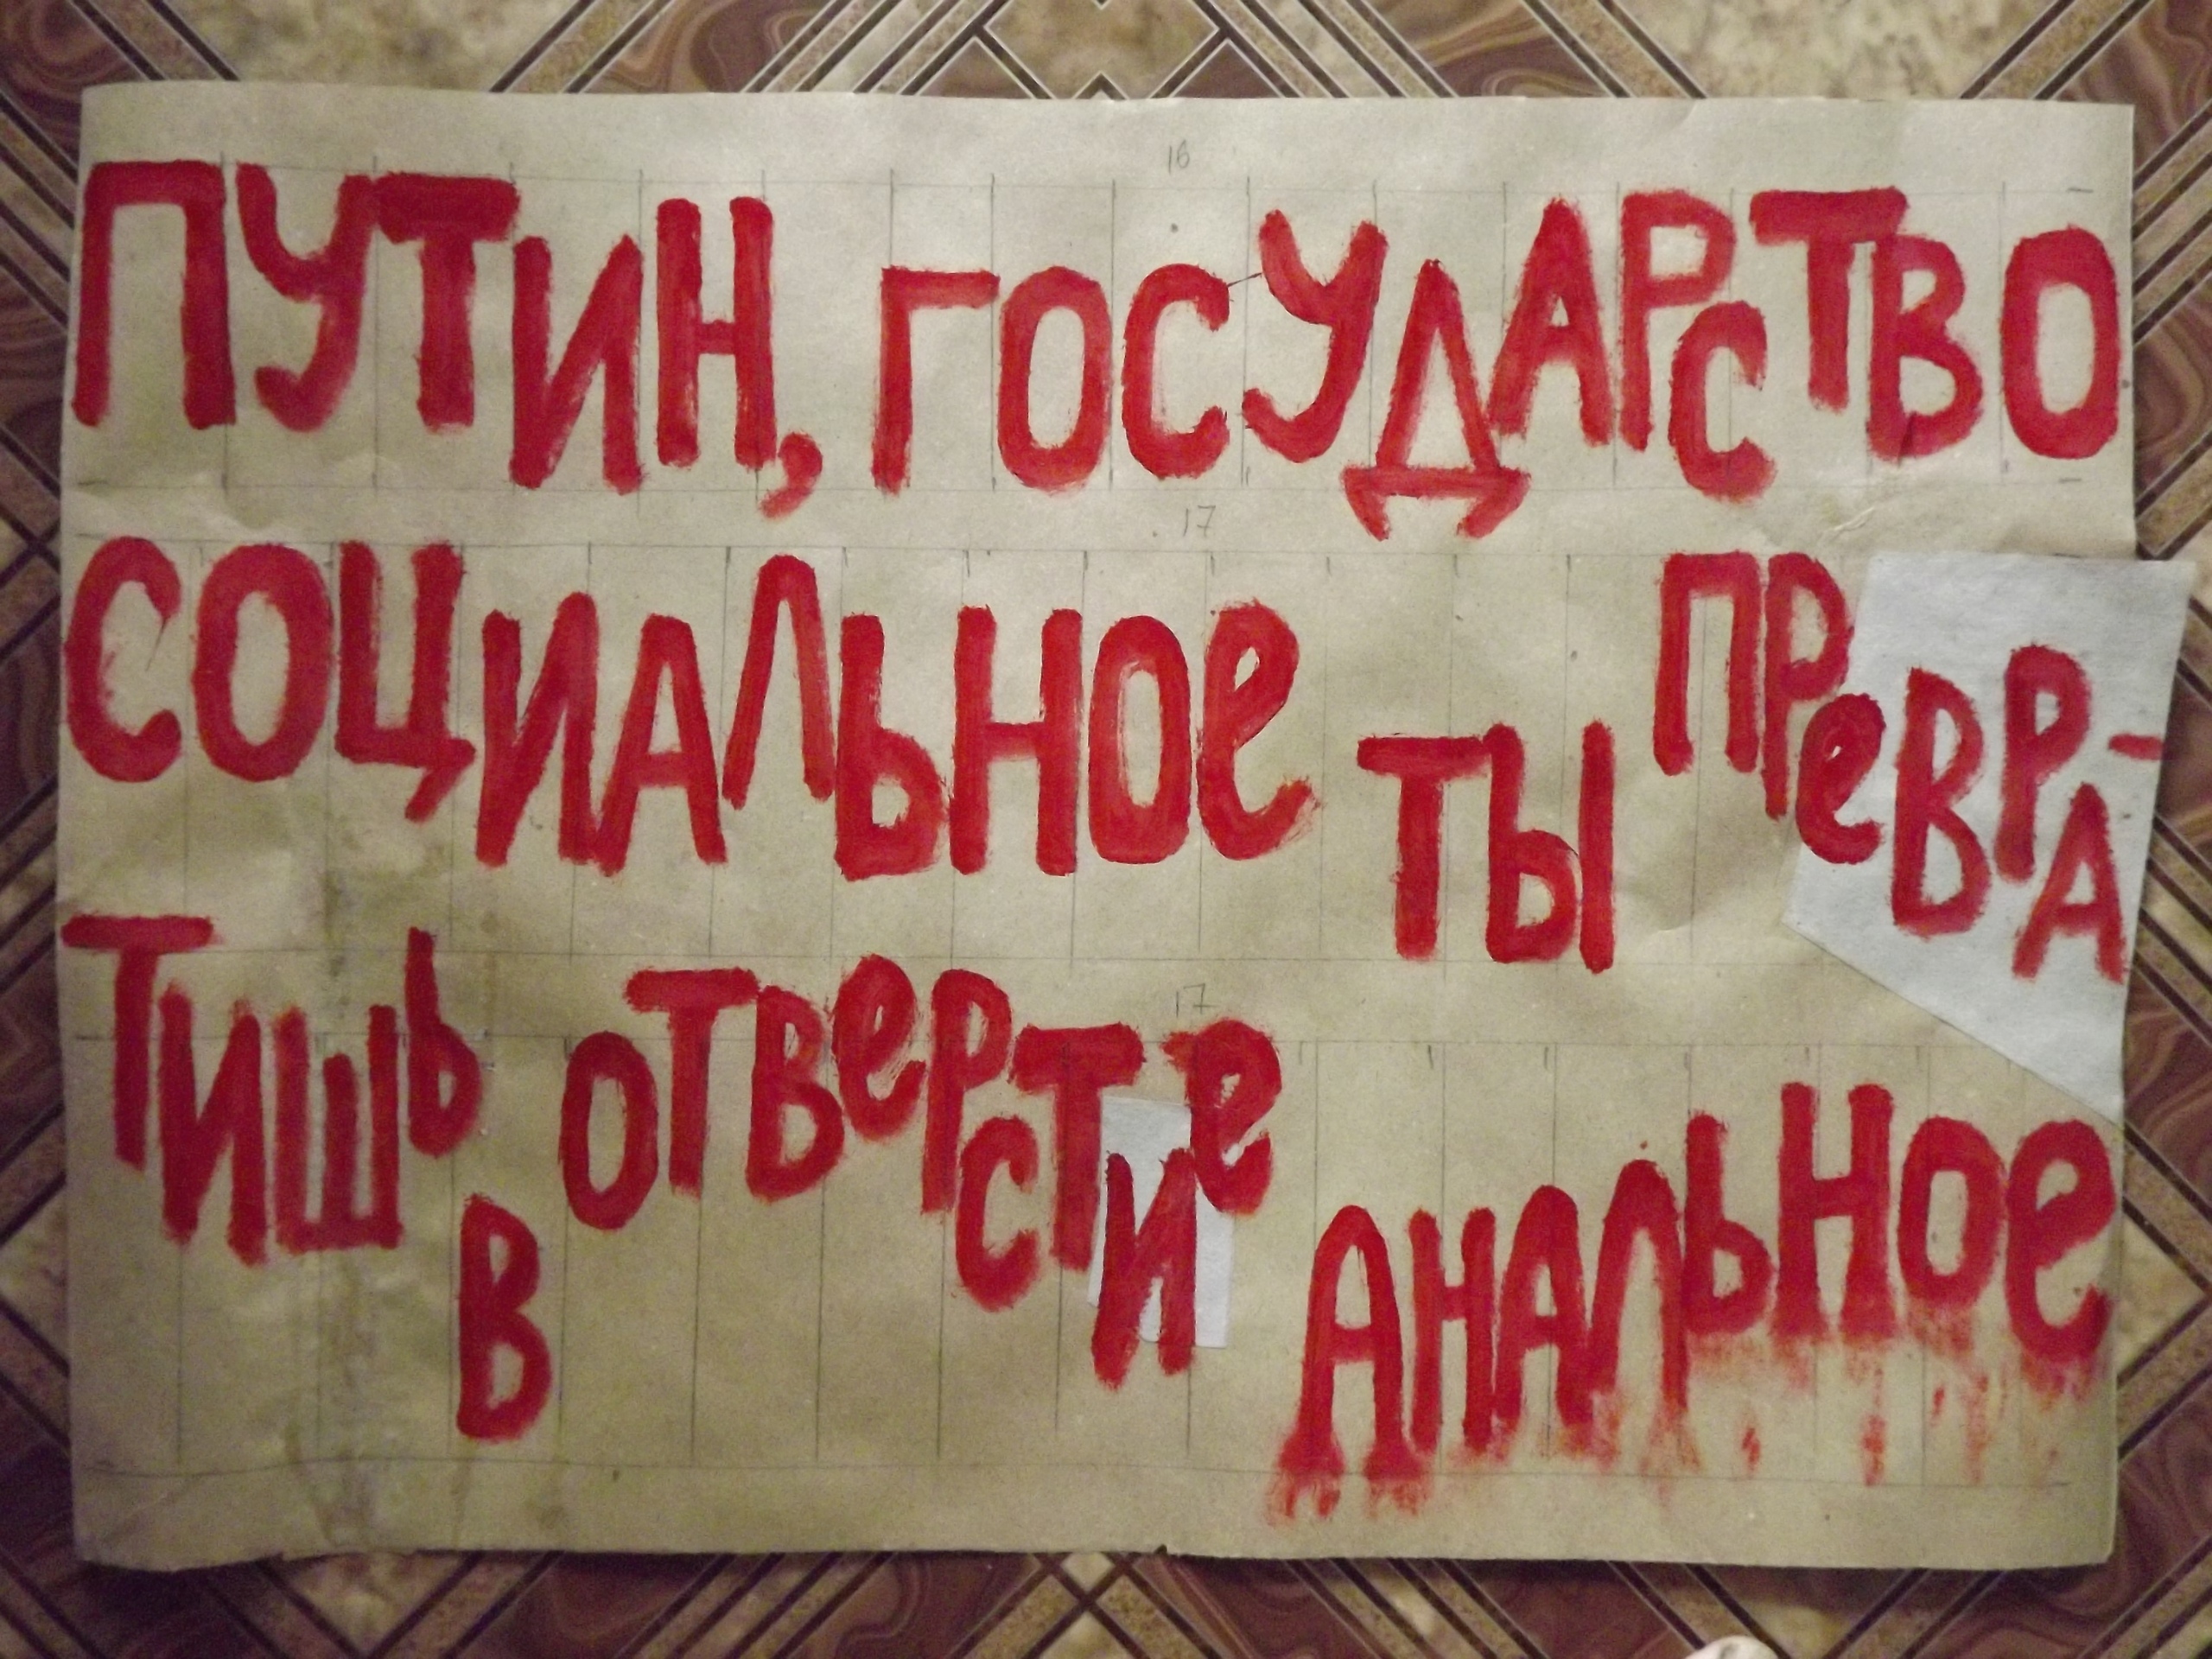 16
ПУТИН, ГОСУДАРСТВО
17
СОЦИАЛЬНОе ТЫ ПРеВРА-
17
ТИШЬ В ОТВеРСТИе АНАЛЬНОе